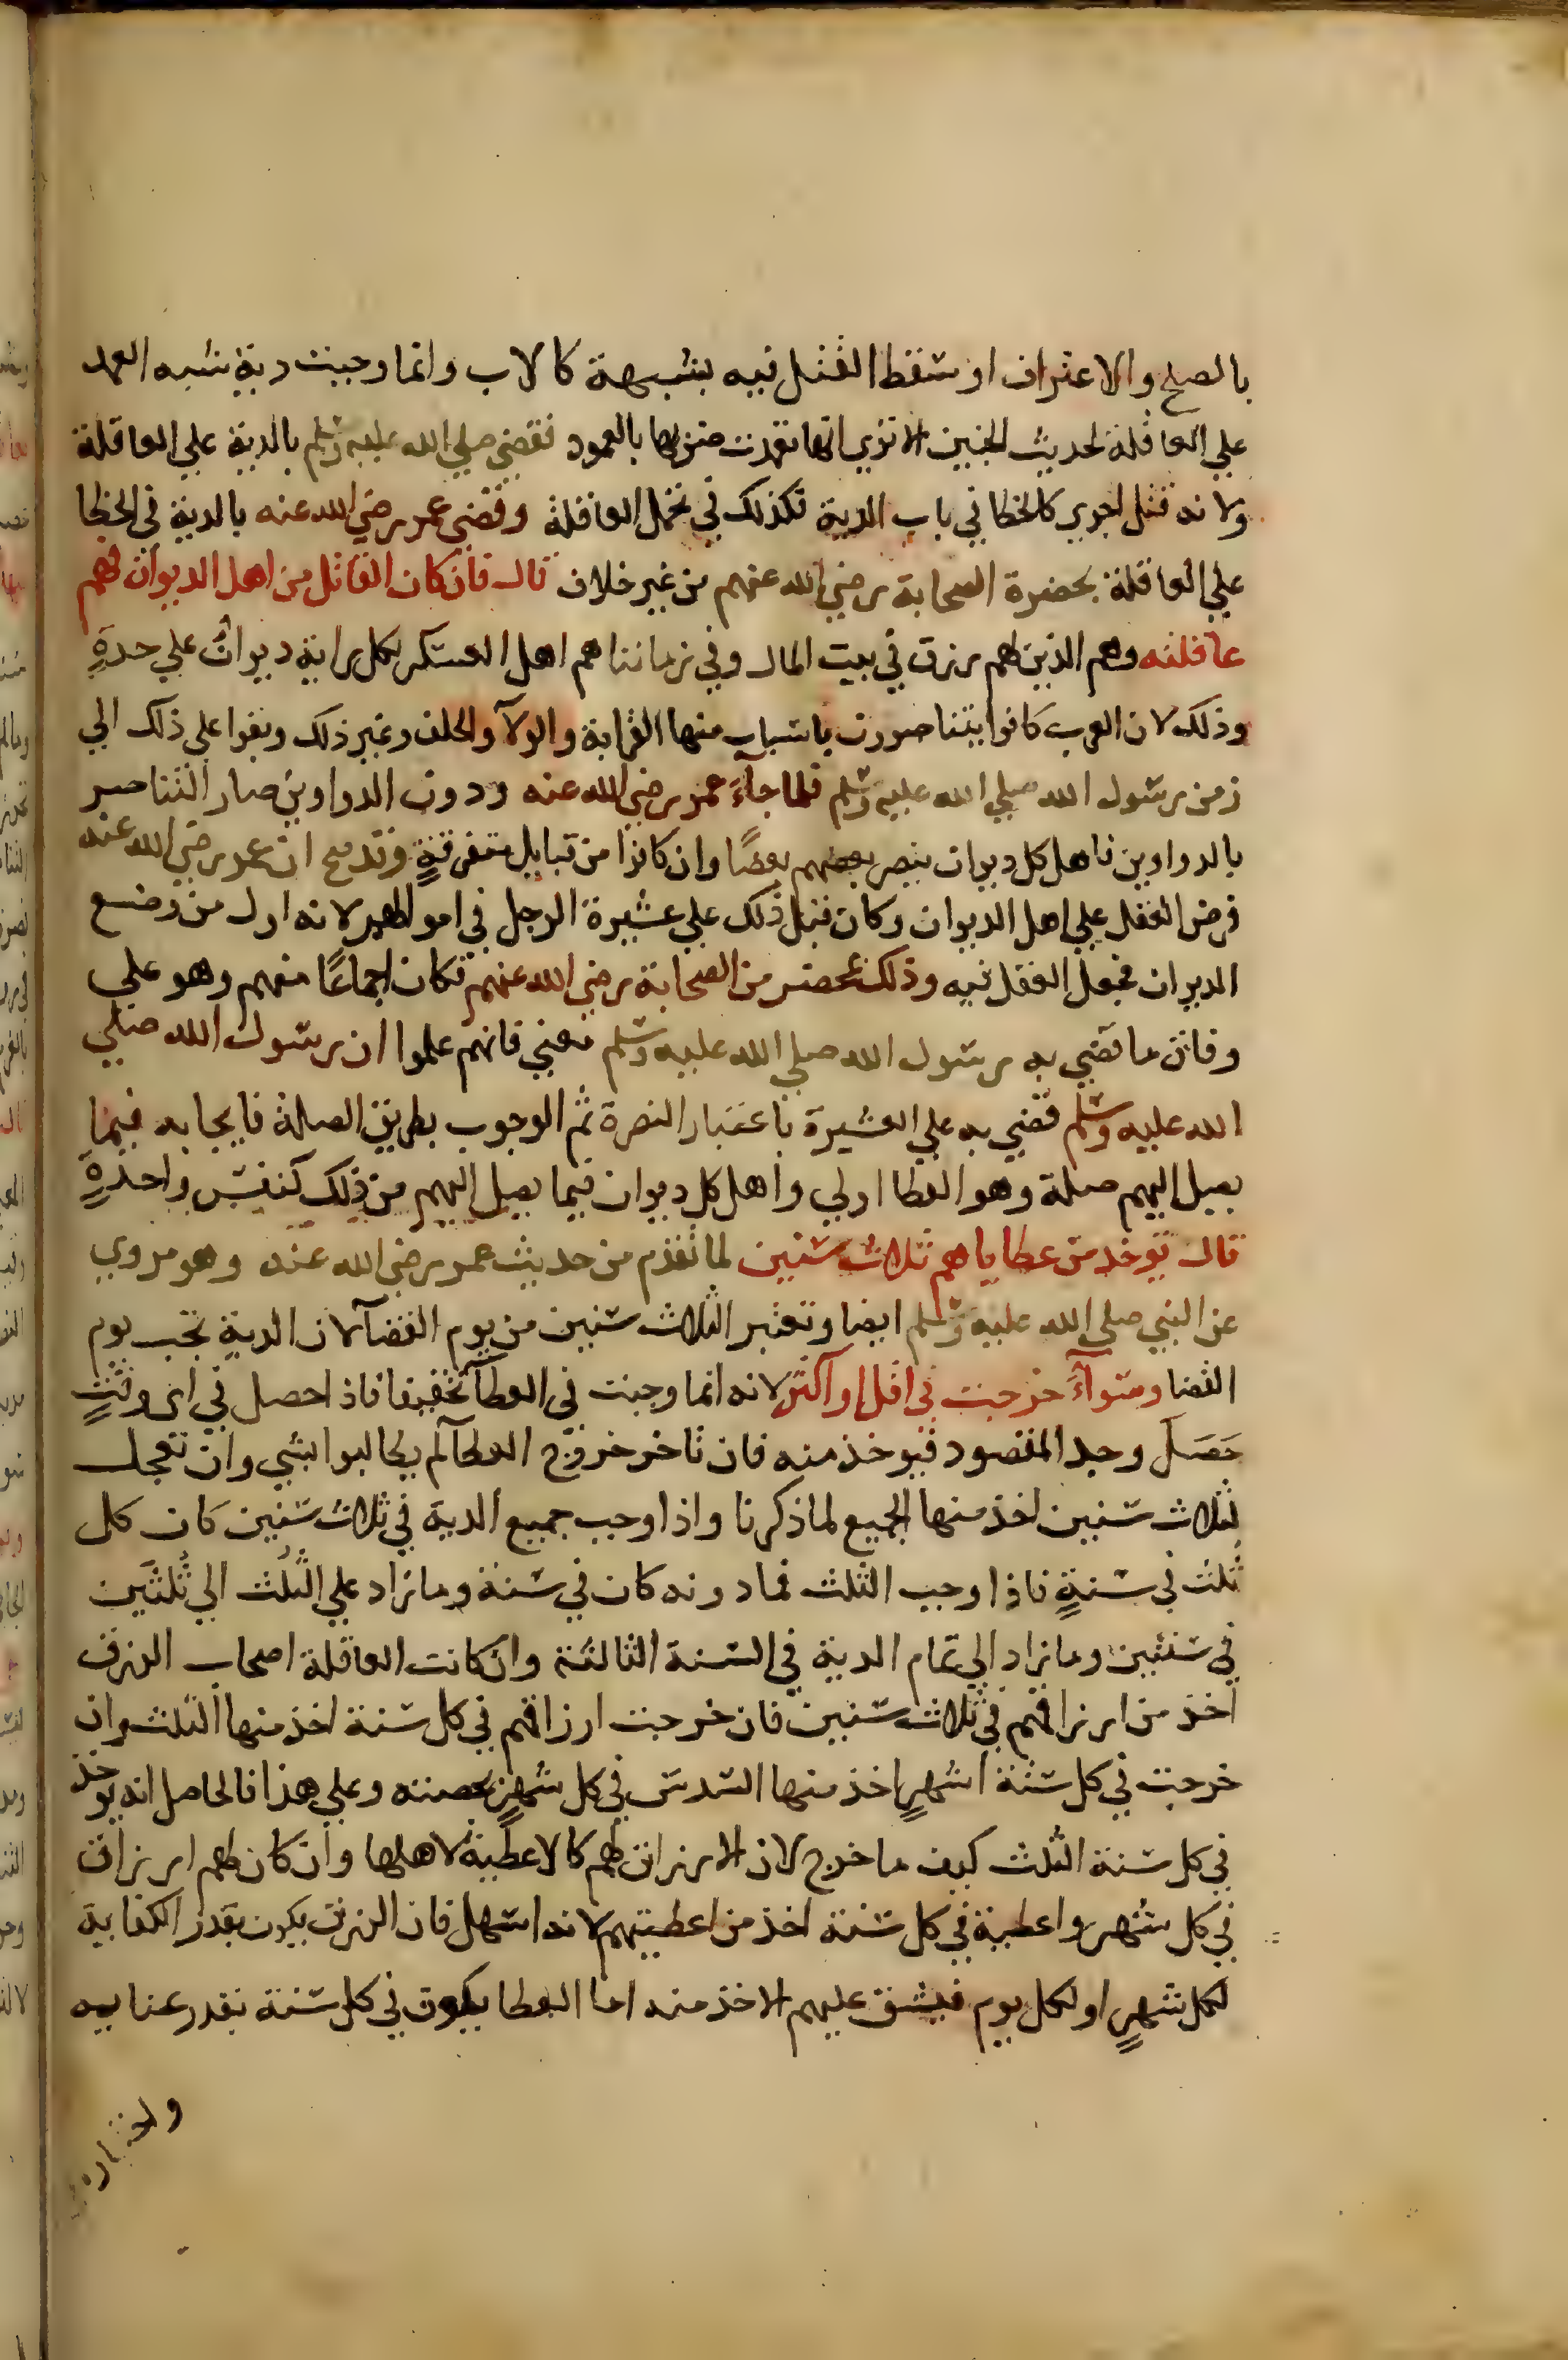 بالصلح والاعتراف او سقط القتل فيه بشبهة كالاب وانما وجبت دية شبه العمد
علي العاقلة لحديث الجنين الا تري انها تعمدت ضربها بالعمود فقضي صلي الله عليه وسلم بالدية علي العاقلة
ولانه قتل اجري كالخطا في باب الدية فكذلك في تحمل العاقلة وقضي عمر رضي الله عنه بالدية في الخطا
علي العاقلة بحضرة الصحابة رضي الله عنهم من غير خلاف قال فان كان القاتل من اهل الديوان فهم
عاقلته وهم الذين لهم رزق في بيت المال وفي زماننا هم اهل العسكر لكل راية ديوانٌ علي حدةٍ
وذلك لان العرب كانوا يتناصرون باسباب منها القرابة والولآ والحلف وغير ذلك وبقوا علي ذلك الي
زمن رسول الله صلي الله عليه وسلم فلما جآءَ عمر رضي الله عنه ودون الدواوين صار التناصر
بالدواوين فاهل كل ديوان ينصر بعضهم بعضًا وان كانوا من قبايل متفرقةٍ وقد صح ان عمر رضي الله عنه
فرض العقل علي اهل الديوان وكان قبل ذلك علي عشيرة الرجل في اموالهم لانه اول من وضع
الديوان فجعل العقل فيه وذلك بمحضر من الصحابة رضي الله عنهم فكان اجماعًا منهم وهو علي
وفاق ما قضي به رسول الله صلي الله عليه وسلم معني فانهم علموا ان رسول الله صلي
الله عليه وسلم قضي به علي العشيرة باعتبار النصرة ثم الوجوب بطريق الصلة فايجابه فيما
يصل اليهم صلة وهو العطا اولي واهل كل ديوان فيما يصل اليهم من ذلك كنفس واحدةٍ
قال توخذ من عطاياهم ثلاث سنين لما تقدم من حديث عمر رضي الله عنه وهو مروي
عن النبي صلي الله عليه وسلم ايضا وتعتبر الثلاث سنين من يوم القضآ لان الدية تجب يوم
القضا وسوآءً خرجت في اقل او اكثر لانه انما وجبت في العطآ تخفيفا فاذا حصل في اي وقتٍ
حَصَلَ وجد المقصود فيوخذ منه فان تاخر خروج العطآ لم يطالبوا بشي وان تعجل
لثلاث سنين اخذ منها الجميع لما ذكرنا واذا وجب جميع الدية في ثلاث سنين كان كل
ثُلث في سنةٍ فاذا وجب الثلث فما دونه كان في سنة وما زاد علي الثُلث الي ثُلثَين
في سنتين وما زاد الي تمام الدية في السنة الثالثة وان كانت العاقلة اصحاب الرزق
اخذ من ارزاقهم في ثلاث سنين فان خرجت ارزاقهم في كل سنة اخذ منها الثلث وان
خرجت في كل ستة اشهرٍ اخذ منها السدس في كل شهرٍ بحصته وعلي هذا فالحاصل انه يوخذ
في كل سنة الثُلث كيف ما خرج لان الارزاق لهم كالاعطية لاهلها وان كان لهم ارزاق
في كل شهر واعطية في كل سنة اخذ من اعطيتهم لانه اسهل فان الرزق يكون بقدر الكفاية
لكل شهرٍ او لكل يوم فيشق عليهم الاخذ منه اما العطا يكون في كل سنة بقدر عنايه